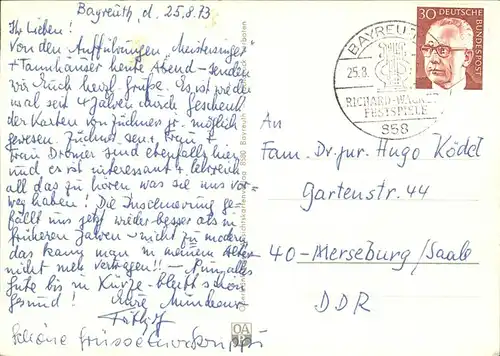 Bayreuth, d. 25.8.73
Ihr Lieben!
Von den Aufführungen „Meistersinger"
+ Tannhäuser heute Abend – senden
wir Euch herzl. Grüße. Es ist wieder
mal seit 4 Jahren durch Geschenk
der Karten von Züchner jr. möglich
gewesen. Züchner sen + Frau +
Frau sind ebenfalls hier
und es ist interessant + lehrreich
all das zu hören was sie uns vor-
weg haben! Die Inszenierung ge-
fällt uns jetzt wieder besser als in
früheren Jahren – nicht zu modern
das kann man in meinem Alter
nicht mehr vertragen!! – Nun, alles
Gute bis in Kürze – bleibt schön
gesund! Eure
schöne Grüsse
30 DEUTSCHE
BUNDESPOST
BAYREUTH
25.8.
RICHARD-WAGNER
FESTSPIELE
858
An
Fam. Dr. jur. Hugo Ködel
Gartenstr. 44
40-Merseburg/Saale
DDR
8580 Bayreuth
OA